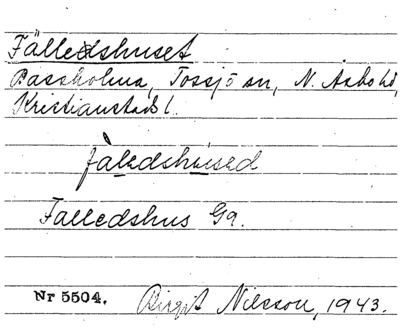 Fälledshuset
Tossjö sn, N. Åsbo hd,
Kristianstads l.
fàledshused
Falledshus Ga.
Nr 5504. Birgit Nilsson, 1943.